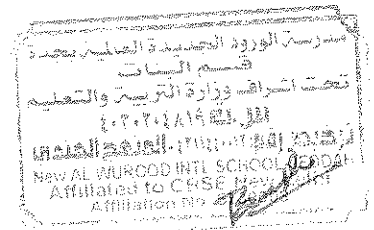 مدرسة الورود الجديدة العالمية بجدة
قسم البنات
تحت اشراف وزارة التربية والتعليم
المنهج الهندي
New AL WUROOD INTL SCHOOL JEDDAH
Affiliated to CBSE New Delhi
Affiliation No